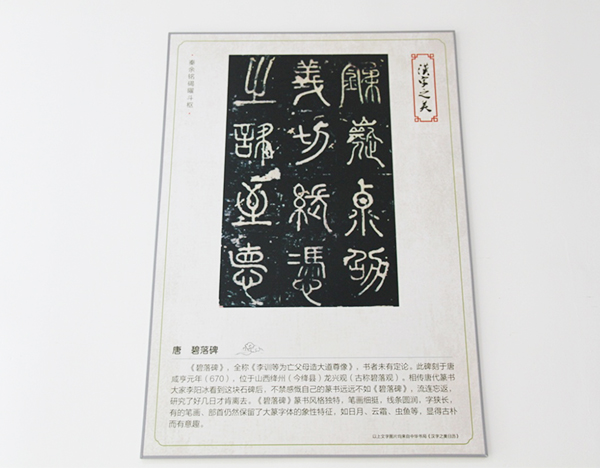 漢字之美
義切憑
之至德
唐 碧落碑
《碧落碑》，全称《李训等为亡父母造大道尊像》，书者未有定论。此碑刻于唐
咸亨元年（670），位于山西绛州（今绛县）龙兴观（古称碧落观）。相传唐代篆书
大家李阳冰看到这块石碑后，不禁感慨自己的篆书远远不如《碧落碑》，流连忘返，
研究了好几日才肯离去。《碧落碑》篆书风格独特，笔画细挺，线条圆润，字狭长，
有的笔画、部首仍然保留了大篆字体的象性特征，如日月、云霞、虫鱼等，显得古朴
而有意趣。
以上文字图片均来自中华书局《汉字之美日历》